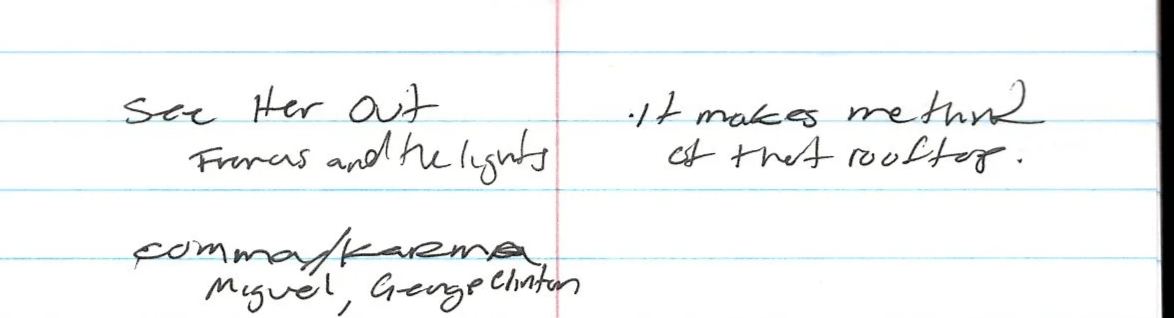 See Her Out
Francis and the lights
.it makes me think
of that rooftop.
comma/karma
Miguel, George Clinton